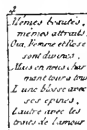 2
Memes beautés,
mêmes attraits.
Oui, Femme et Rose
sont divines.
Mais en nous char-
mant tour a tou
L'une blesse avec
ses epines,
L'autre avec les
traits de l'amour